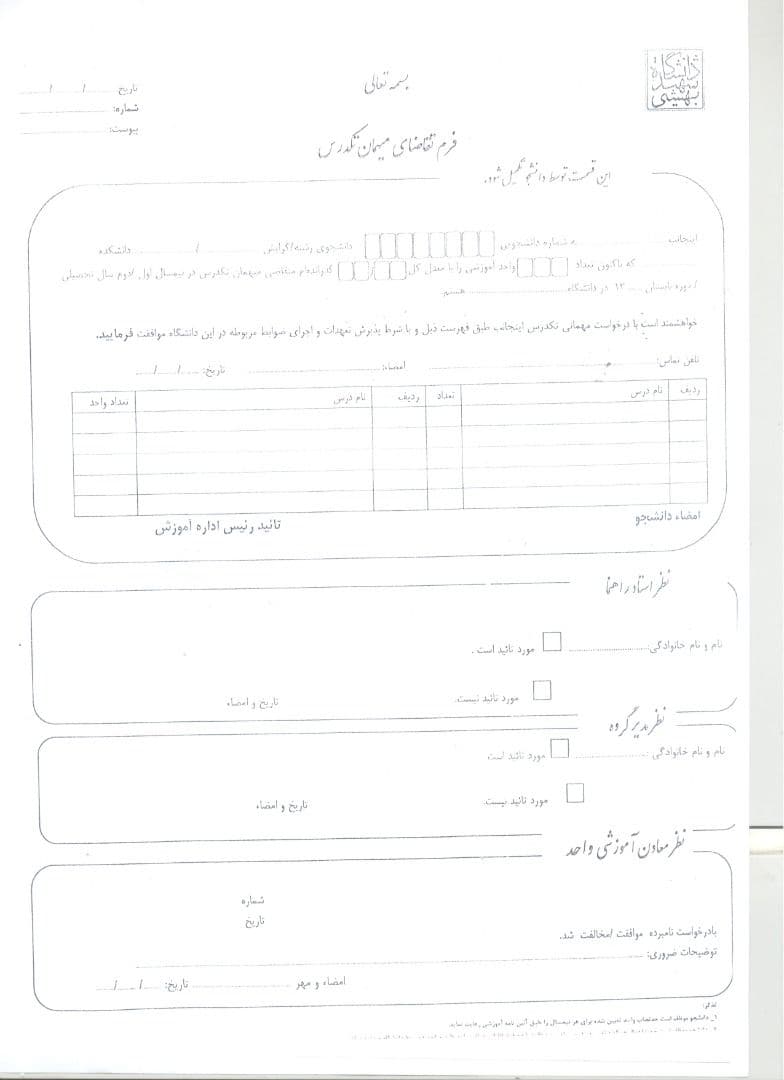 دانشگاه شهید بهشتی
بسمه تعالی
تاریخ ....... / ....... / .......
شماره: .......
پیوست: .......
فرم تقاضای میهمان تکدرس
این قسمت توسط دانشجو تکمیل شود.
اینجانب ....... به شماره دانشجویی دانشجوی رشته/گرایش ....... / ....... دانشکده
که تاکنون تعداد واحد آموزشی را با معدل کل / گذرانده‌ام متقاضی میهمان تکدرس در نیمسال اول /دوم سال تحصیلی
/ دوره تابستان ..... ۱۳ در دانشگاه ....... هستم.
خواهشمند است با درخواست مهمانی تکدرس اینجانب طبق فهرست ذیل و با شرط پذیرش تعهدات و اجرای ضوابط مربوطه در این دانشگاه موافقت فرمایید.
تلفن تماس: ....... امضاء: ....... تاریخ: ..... / ..... / .....
ردیف نام درس تعداد ردیف نام درس تعداد واحد
امضاء دانشجو تائید رئیس اداره آموزش
نظر استاد راهنما
نام و نام خانوادگی: ....... مورد تائید است .
مورد تائید نیست. تاریخ و امضاء
نظر مدیر گروه
نام و نام خانوادگی : ....... مورد تائید است
مورد تائید نیست. تاریخ و امضاء
نظر معاون آموزشی واحد
شماره
تاریخ
با درخواست نامبرده موافقت /مخالفت شد.
توضیحات ضروری: .......
امضاء و مهر ....... تاریخ: ..... / ..... / .....
تذکر:
۱_ دانشجو موظف است حدنصاب واحد تعیین شده برای هر نیمسال را طبق آئین نامه آموزشی رعایت نماید.